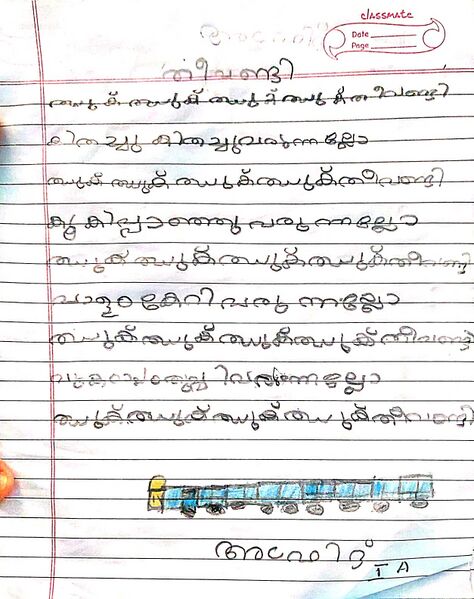 classmate
Date
Page
തീവണ്ടി
ഝുക് ഝുക് ഝുക് ഝുക് തീവണ്ടി
കിതച്ചു കിതച്ചുവരുന്നല്ലോ
ഝുക് ഝുക് ഝുക് ഝുക് തീവണ്ടി
കൂകിപ്പാഞ്ഞു വരുന്നല്ലോ
ഝുക് ഝുക് ഝുക് ഝുക് തീവണ്ടി
പാളം കേറി വരുന്നല്ലോ
ഝുക് ഝുക് ഝുക് ഝുക് തീവണ്ടി
വരുന്നല്ലോ
ഝുക് ഝുക് ഝുക് ഝുക് തീവണ്ടി
I A